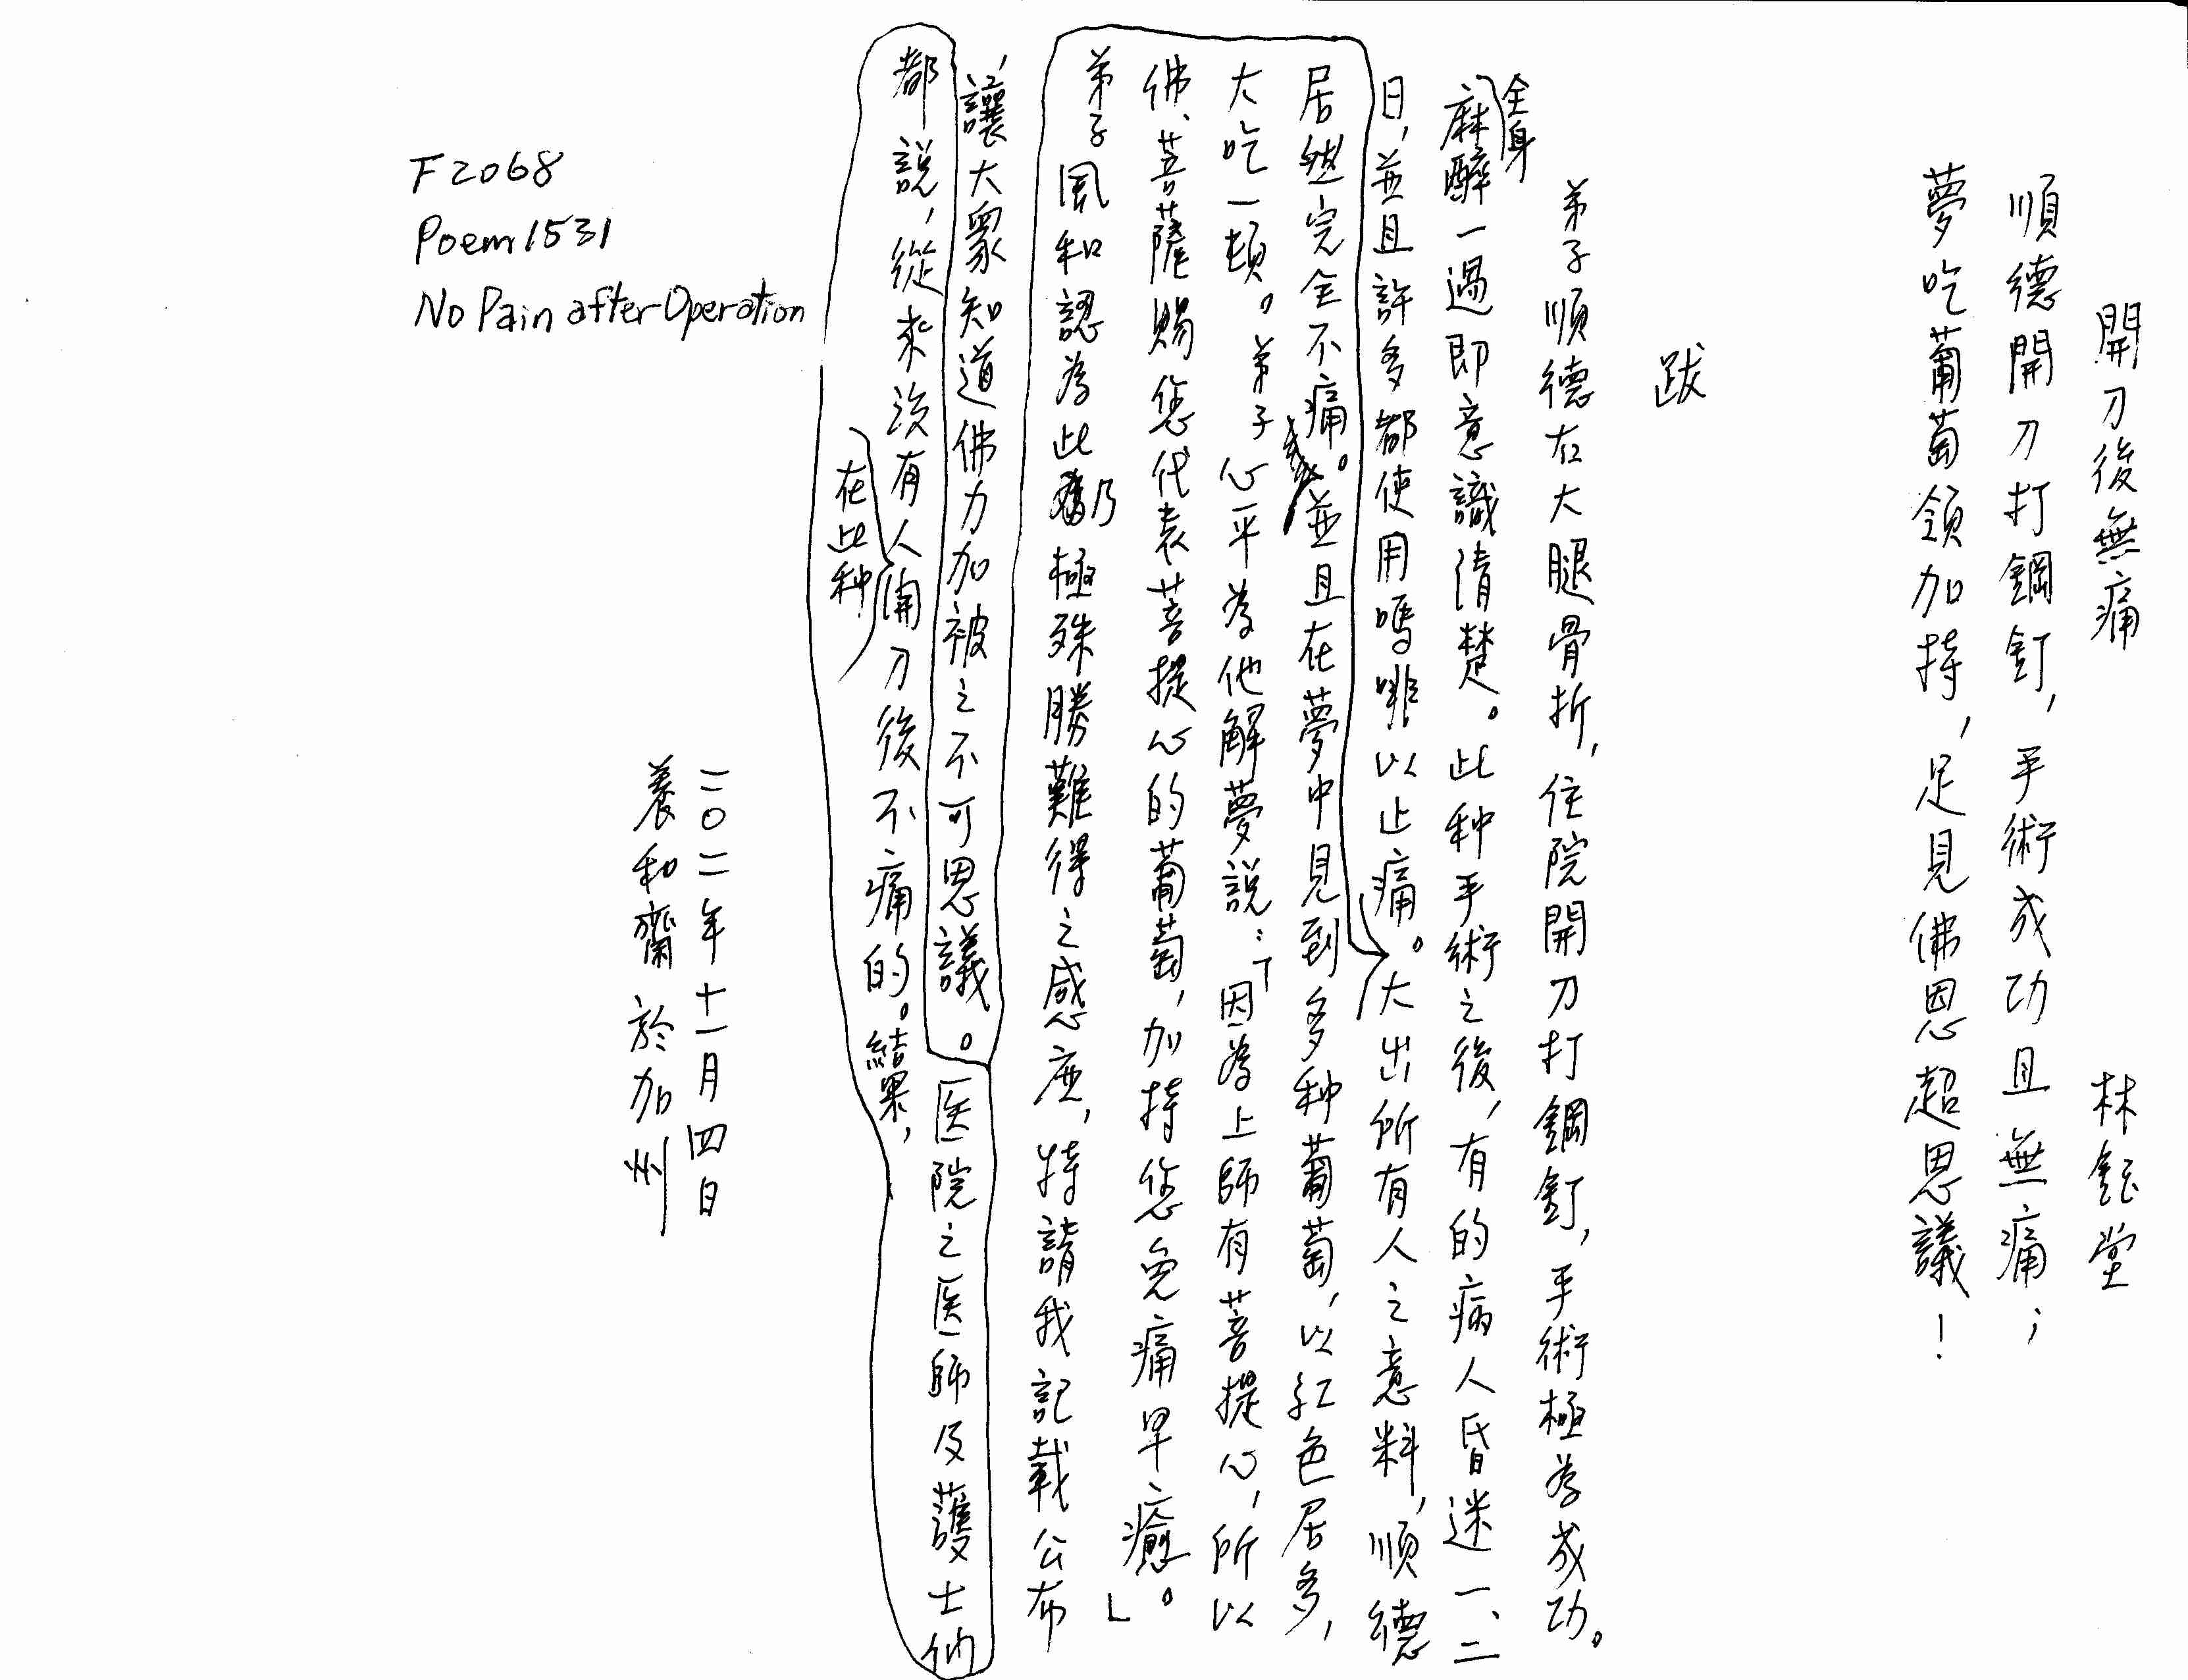 開刀後無痛　林鈺堂
順德開刀打鋼釘，手術成功且無痛；
夢吃葡萄領加持，足見佛恩超思議！
跋
弟子順德右大腿骨折，住院開刀打鋼釘，手術極為成功。
全身
麻醉一過即意識清楚。此种手術之後，有的病人昏迷一、二
日，並且許多都使用嗎啡以止痛。大出所有人之意料，順德
居然完全不痛。並且在夢中見到多种葡萄，以紅色居多，
大吃一頓。弟子心平為他解夢說：「因為上師有菩提心，所以
佛、菩薩賜您代表菩提心的葡萄，加持您免痛早癒。」
弟子風和認為此乃極殊勝難得之感應，特請我記載公布
，讓大眾知道佛力加被之不可思議。医院之医師及護士們
都說，從來沒有人開刀後不痛的。結果，
在此种
二〇一二年十一月四日
養和齋 於加州
F2068
Poem1531
No Pain after Operation